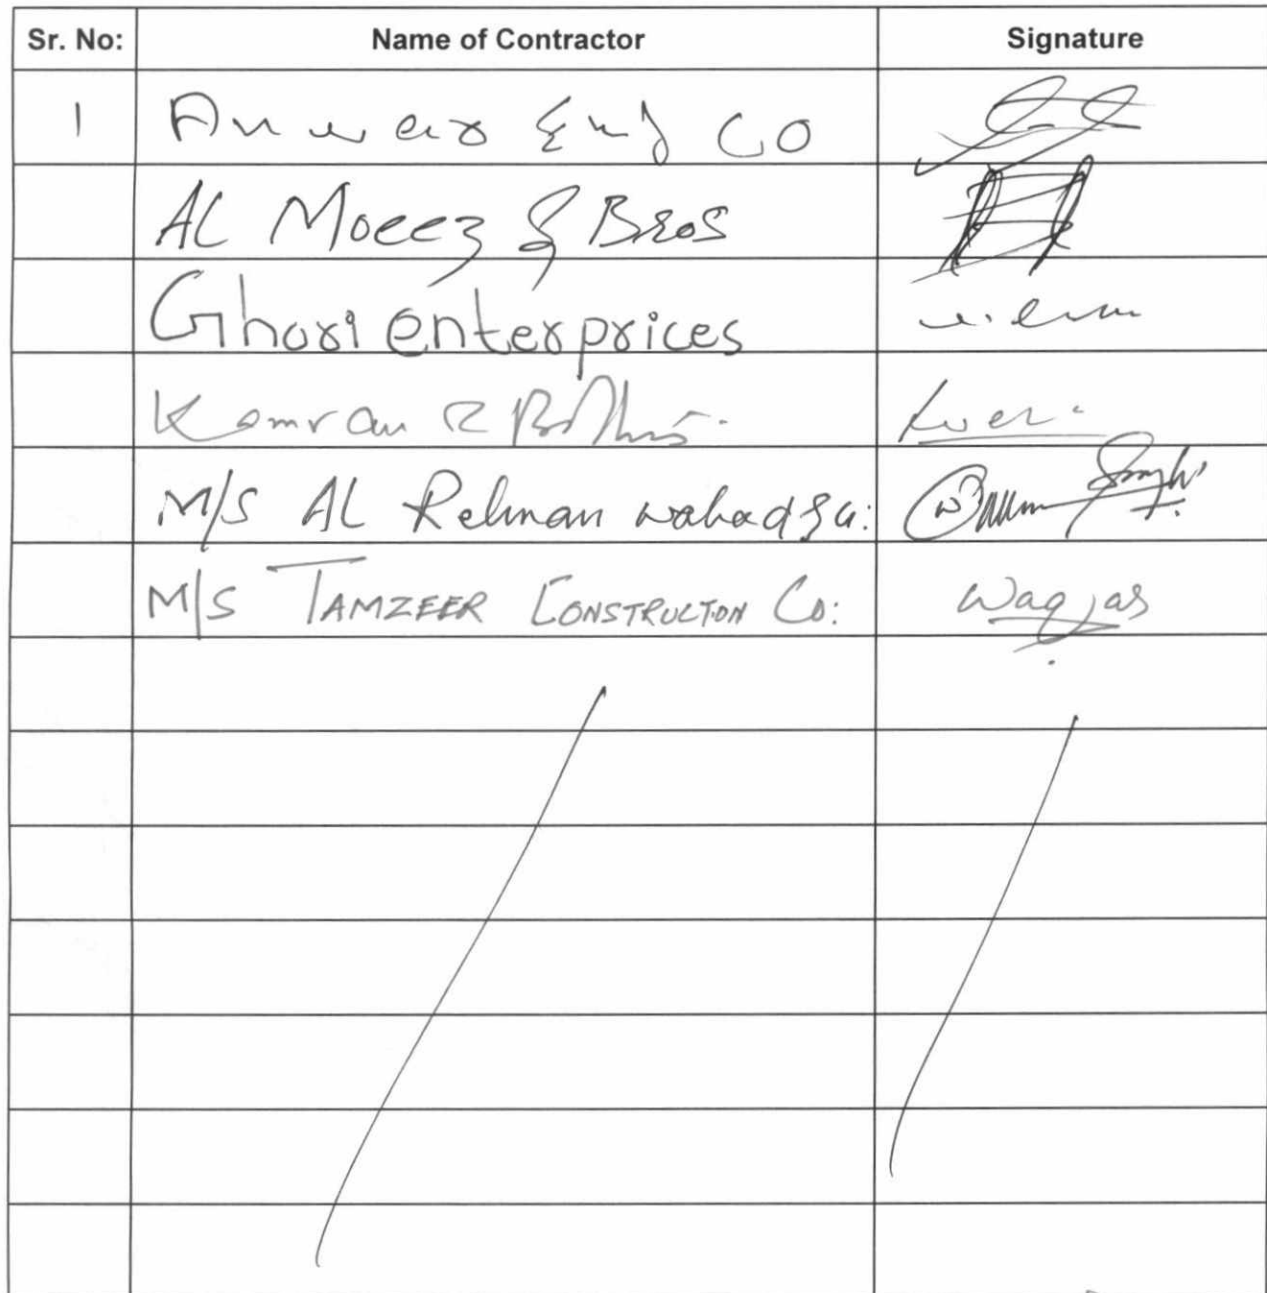 Sr. No: Name of Contractor Signature
1 Anwar Eng Co
AL Moeez & Bros
Ghori enterprices
Kamran & Brothers.
M/S AL Rehman wahad & Co:
M/S TAMZEER CONSTRUCTON Co: Waqas